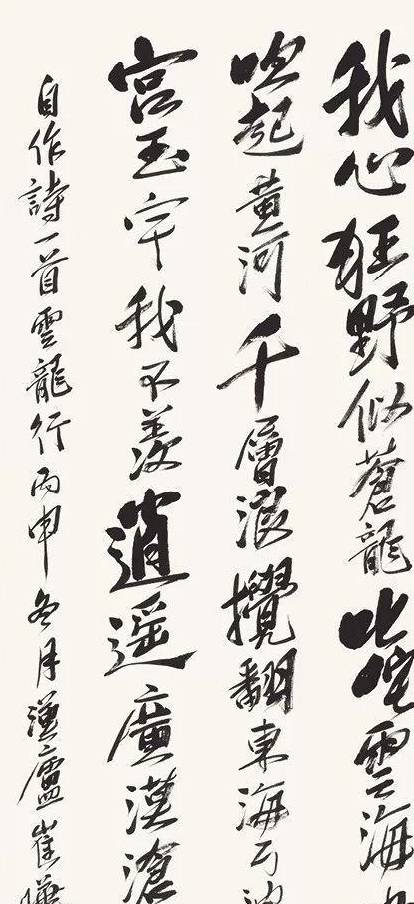 我心狂野似蒼龍叱咤雲海
吹起黄河千層浪攪翻東海
宫玉宇我不羡逍遥廣漠滄
自作詩一首雲龍行丙申冬月漢廬崔